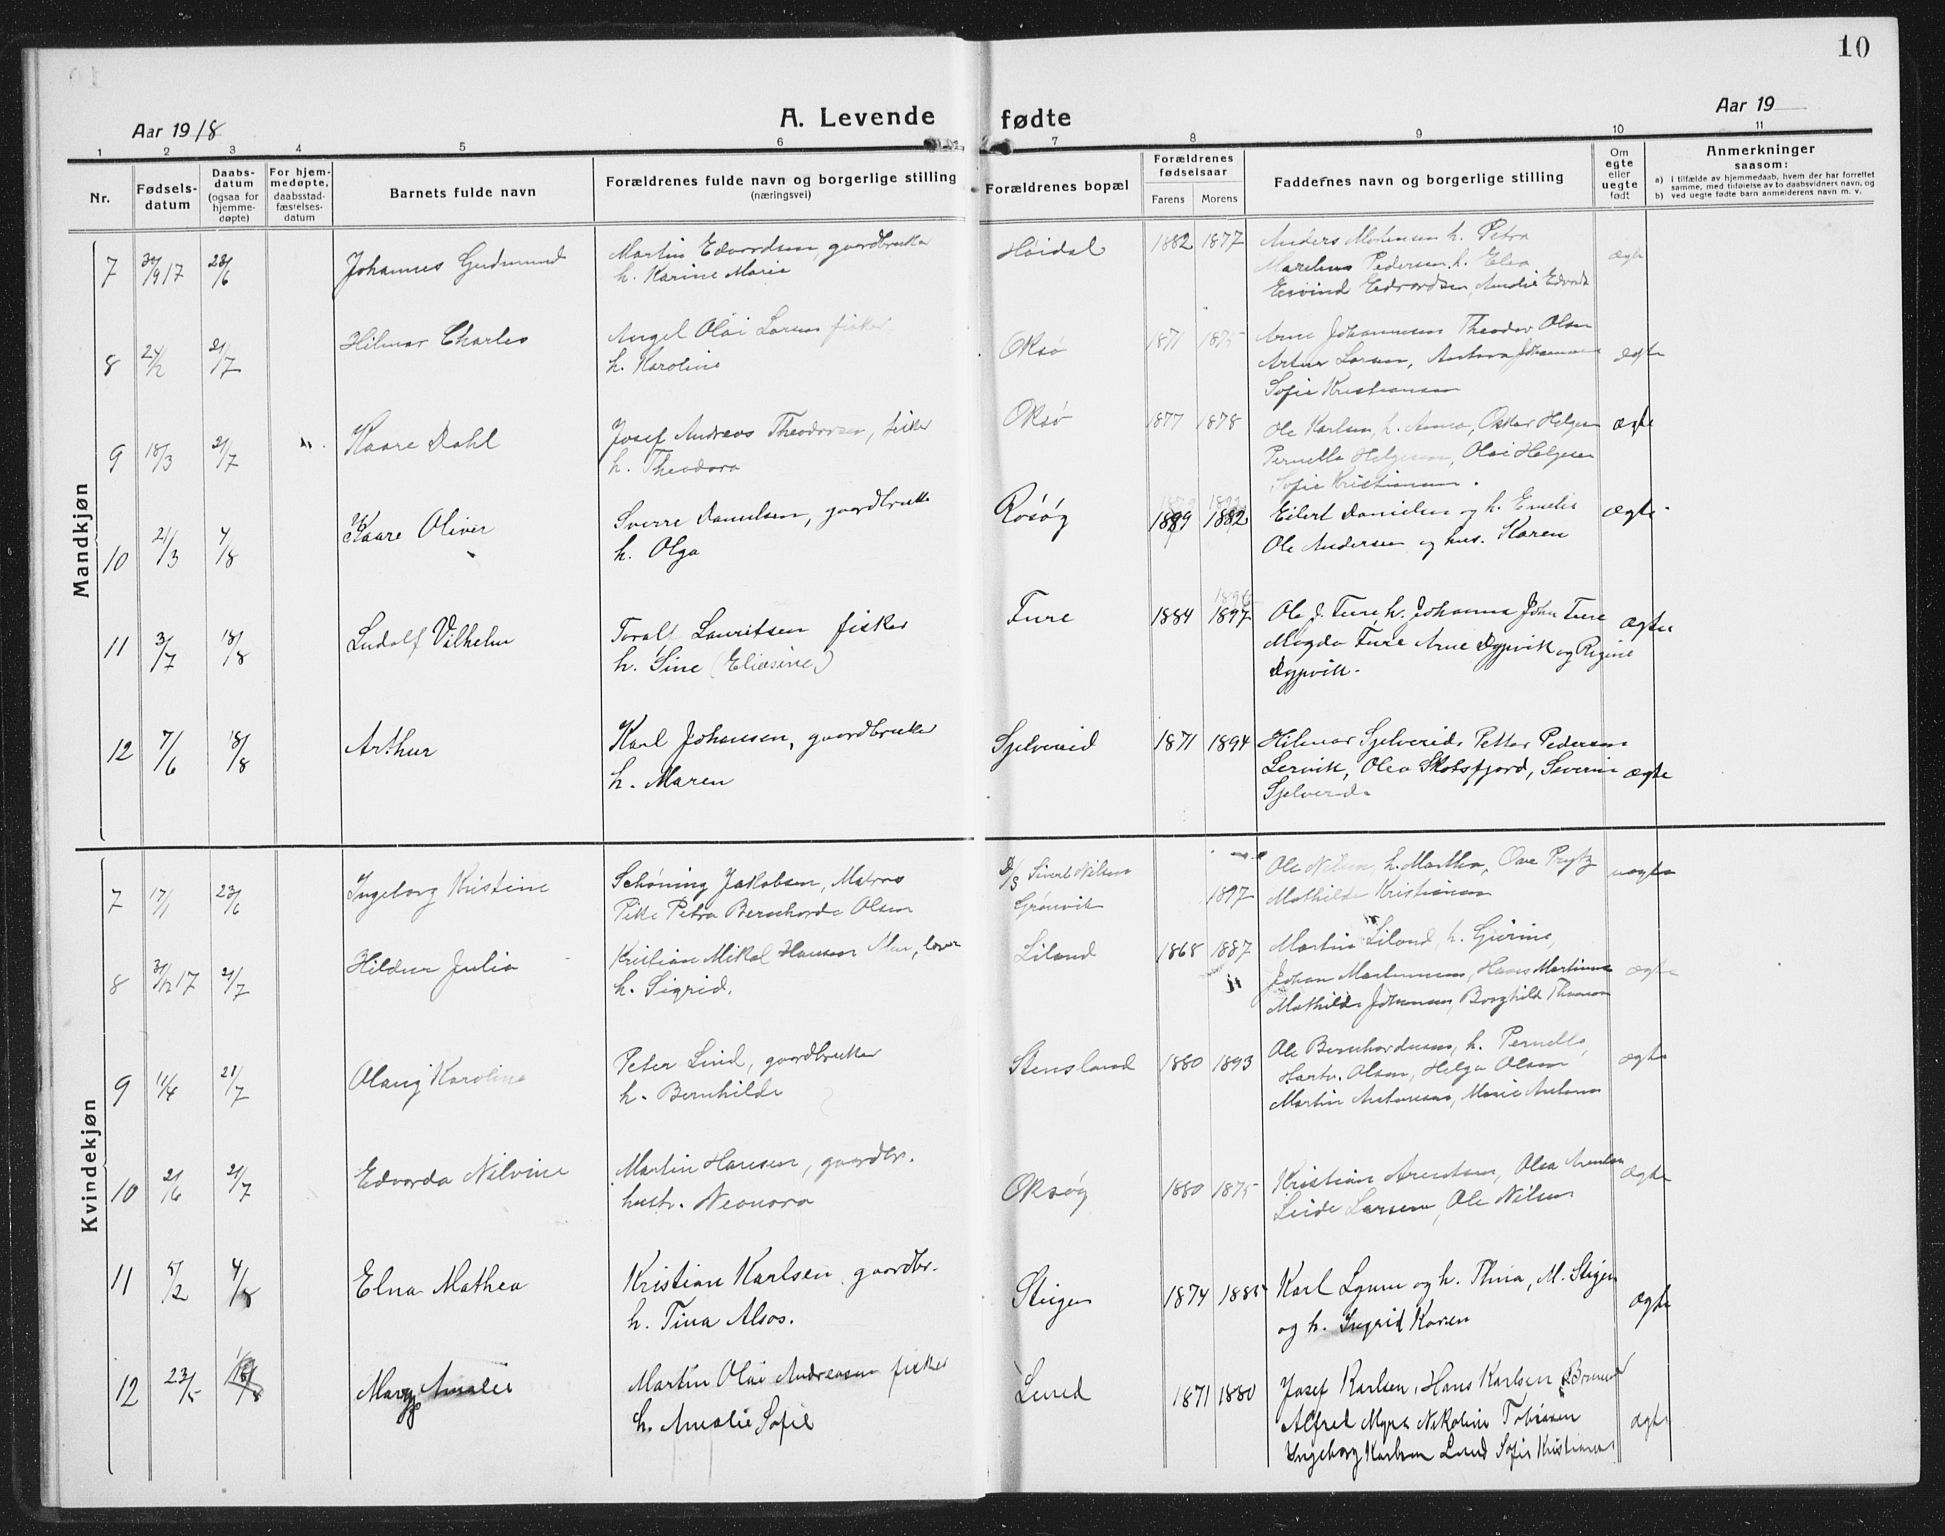 10
Aar 1918
A. Levende fødte
Aar 19
1 2 3 4 5 6 7 8 9 10 11
Nr.
Fødsels-
datum
Daabs-
datum
(ogsaa for
hjemme-
døpte)
For hjem-
medøpte,
daabsstad-
fæstelses-
datum
Barnets fulde navn
Forældrenes fulde navn og borgerlige stilling
(næringsvei)
Forældrenes bopæl
Forældrenes
fødselsaar
Farens Morens
Faddernes navn og borgerlige stilling
Om
egte
eller
uegte
født
Anmerkninger
saasom:
a) i tilfælde av hjemmedaab, hvem der har forrettet
samme, med tilføielse av to daabsvidners navn, og
b) ved uegte fødte barn anmelderens navn m. v.
Mandkjøn
7 /9 17 23/6 Johannes Gudmund
Martin Edvardsen, gaardbruker
h. Karine Marie
Høidal 1882 1877
Anders Mortensen h. Petra
Marelius Pedersen, h. Elea
Eivind Edvardsen, Amalie Edvards
ægte
8 24/2 21/7 Hilmar Charles
Angel Olai Larsen fisker
h. Karoline
Oksø 1871 1875
Arne Johannessen Theodor Olsen
Artur Larsen, Antona Johannesen
Sofie Kristiansen
ægte
9 18/3 21/7 Kaare Dahl
Josef Andreas Theodorsen, fisker
h. Theodora
Oksø 1877 1878
Ole Karlsen, h. Anna, Oskar Helgesen
Pernella Helgesen, Olai Helgesen
Sofie Kristiansen.
ægte
10 21/3 4/8 Kaare Oliver
Sverre Danielsen, gaardbruker
h. Olga
Røsøg 1889 1882
Eilert Danielsen og h. Emelie
Ole Andersen og hus. Karen
ægte
11 3/7 18/8 Ludolf Vilhelm
Toralf Lauritsen fisker
h. Sine (Eliasine)
Fure 1884 1897
1896
Ole J. Fure, h. Johanna John Fure
Magda Fure Arne Dypvik og Regine
Dypvik.
ægte
12 7/6 18/8 Arthur
Karl Johansen, gaardbruker
h. Maren
Sjelvereid 1871 1894
Hilmar Sjelvereid, Petter Pedersen
Lervik, Olea Skotsfjord, Severin
Sjelvereid.
ægte
Kvindekjøn
7 17/1 23/6 Ingeborg Kristine
Schøning Jakobsen, Matros
Pike Petra Bernhorda Olsen
D/S Sivert Nilsen
Grønvik
1897
Ole Nilsen, h. Martha, Ove Prytz
Mathilde Kristiansen
uægte
8 31/12 17 21/7 Hildur Julia
Kristian Mikal Hansen
h. Sigrid.
Liland 1868 1887
Martin Liland, h. Gjerine,
Johan Martinussen, Hans Martinus
Mathilde Johansen, Borghild Thomsen
ægte
9 11/4 21/7 Olaug Karoline
Peter Lind, gaardbruker
h. Bernhilda
Stensland 1880 1893
Ole Bernhardsen, h. Pernella,
Hartv. Olsen, Helga Olsen
Martin Antonsen, Marie Antonsen
ægte
10 2/6 21/7 Edvarda Nilvine
Martin Hansen, gaardbr.
hustr. Neonora
Oksøg 1880 1875
Kristian Arentsen, Olea Arentsen
Leide Larsen, Ole Nilsen
ægte
11 5/2 4/8 Elna Mathea
Kristian Karlsen gaardbr.
h. Tina Alsos.
Steigen 1874 1885
Karl Lynum og h. Thina, M. Steigen
og h. Ingrid Karen
ægte
12 23/5 18/8 Amalie
Martin Olai Andreasen fisker
h. Amalie Sofie
Lund 1871 1880
Josef Karlsen, Hans Karlsen
Alfred Myra Nikoline Tobiasen
Ingeborg Karlsen Lund Sofie Kristiansen
ægte